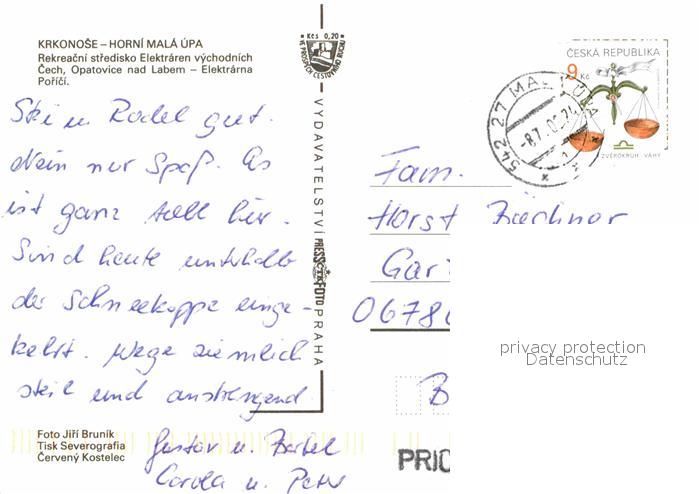 KRKONOŠE – HORNÍ MALÁ ÚPA
Rekreační středisko Elektráren východních
Čech, Opatovice nad Labem – Elektrárna
Poříčí.
Ski u. Rodel gut.
Nein nur Spaß. Es
ist ganz toll hier.
Sind heute unterhalb
der Schneekoppe einge-
kehrt. Wege ziemlich
steil und anstrengend.
Gustav u. Bärbel
Carola u. Peter
Foto Jiří Bruník
Tisk Severografia
Červený Kostelec
Kčs 0,20
VE PROSPĚCH CESTOVNÍHO RUCHU
VYDAVATELSTVÍ PRESSFOTO PRAHA
ČESKÁ REPUBLIKA
9 Kč
ZVĚROKRUH - VÁHY
542 27 MALÁ ÚPA
Fam.
Horst
Gar
0678
B
PRIO
privacy protection
Datenschutz